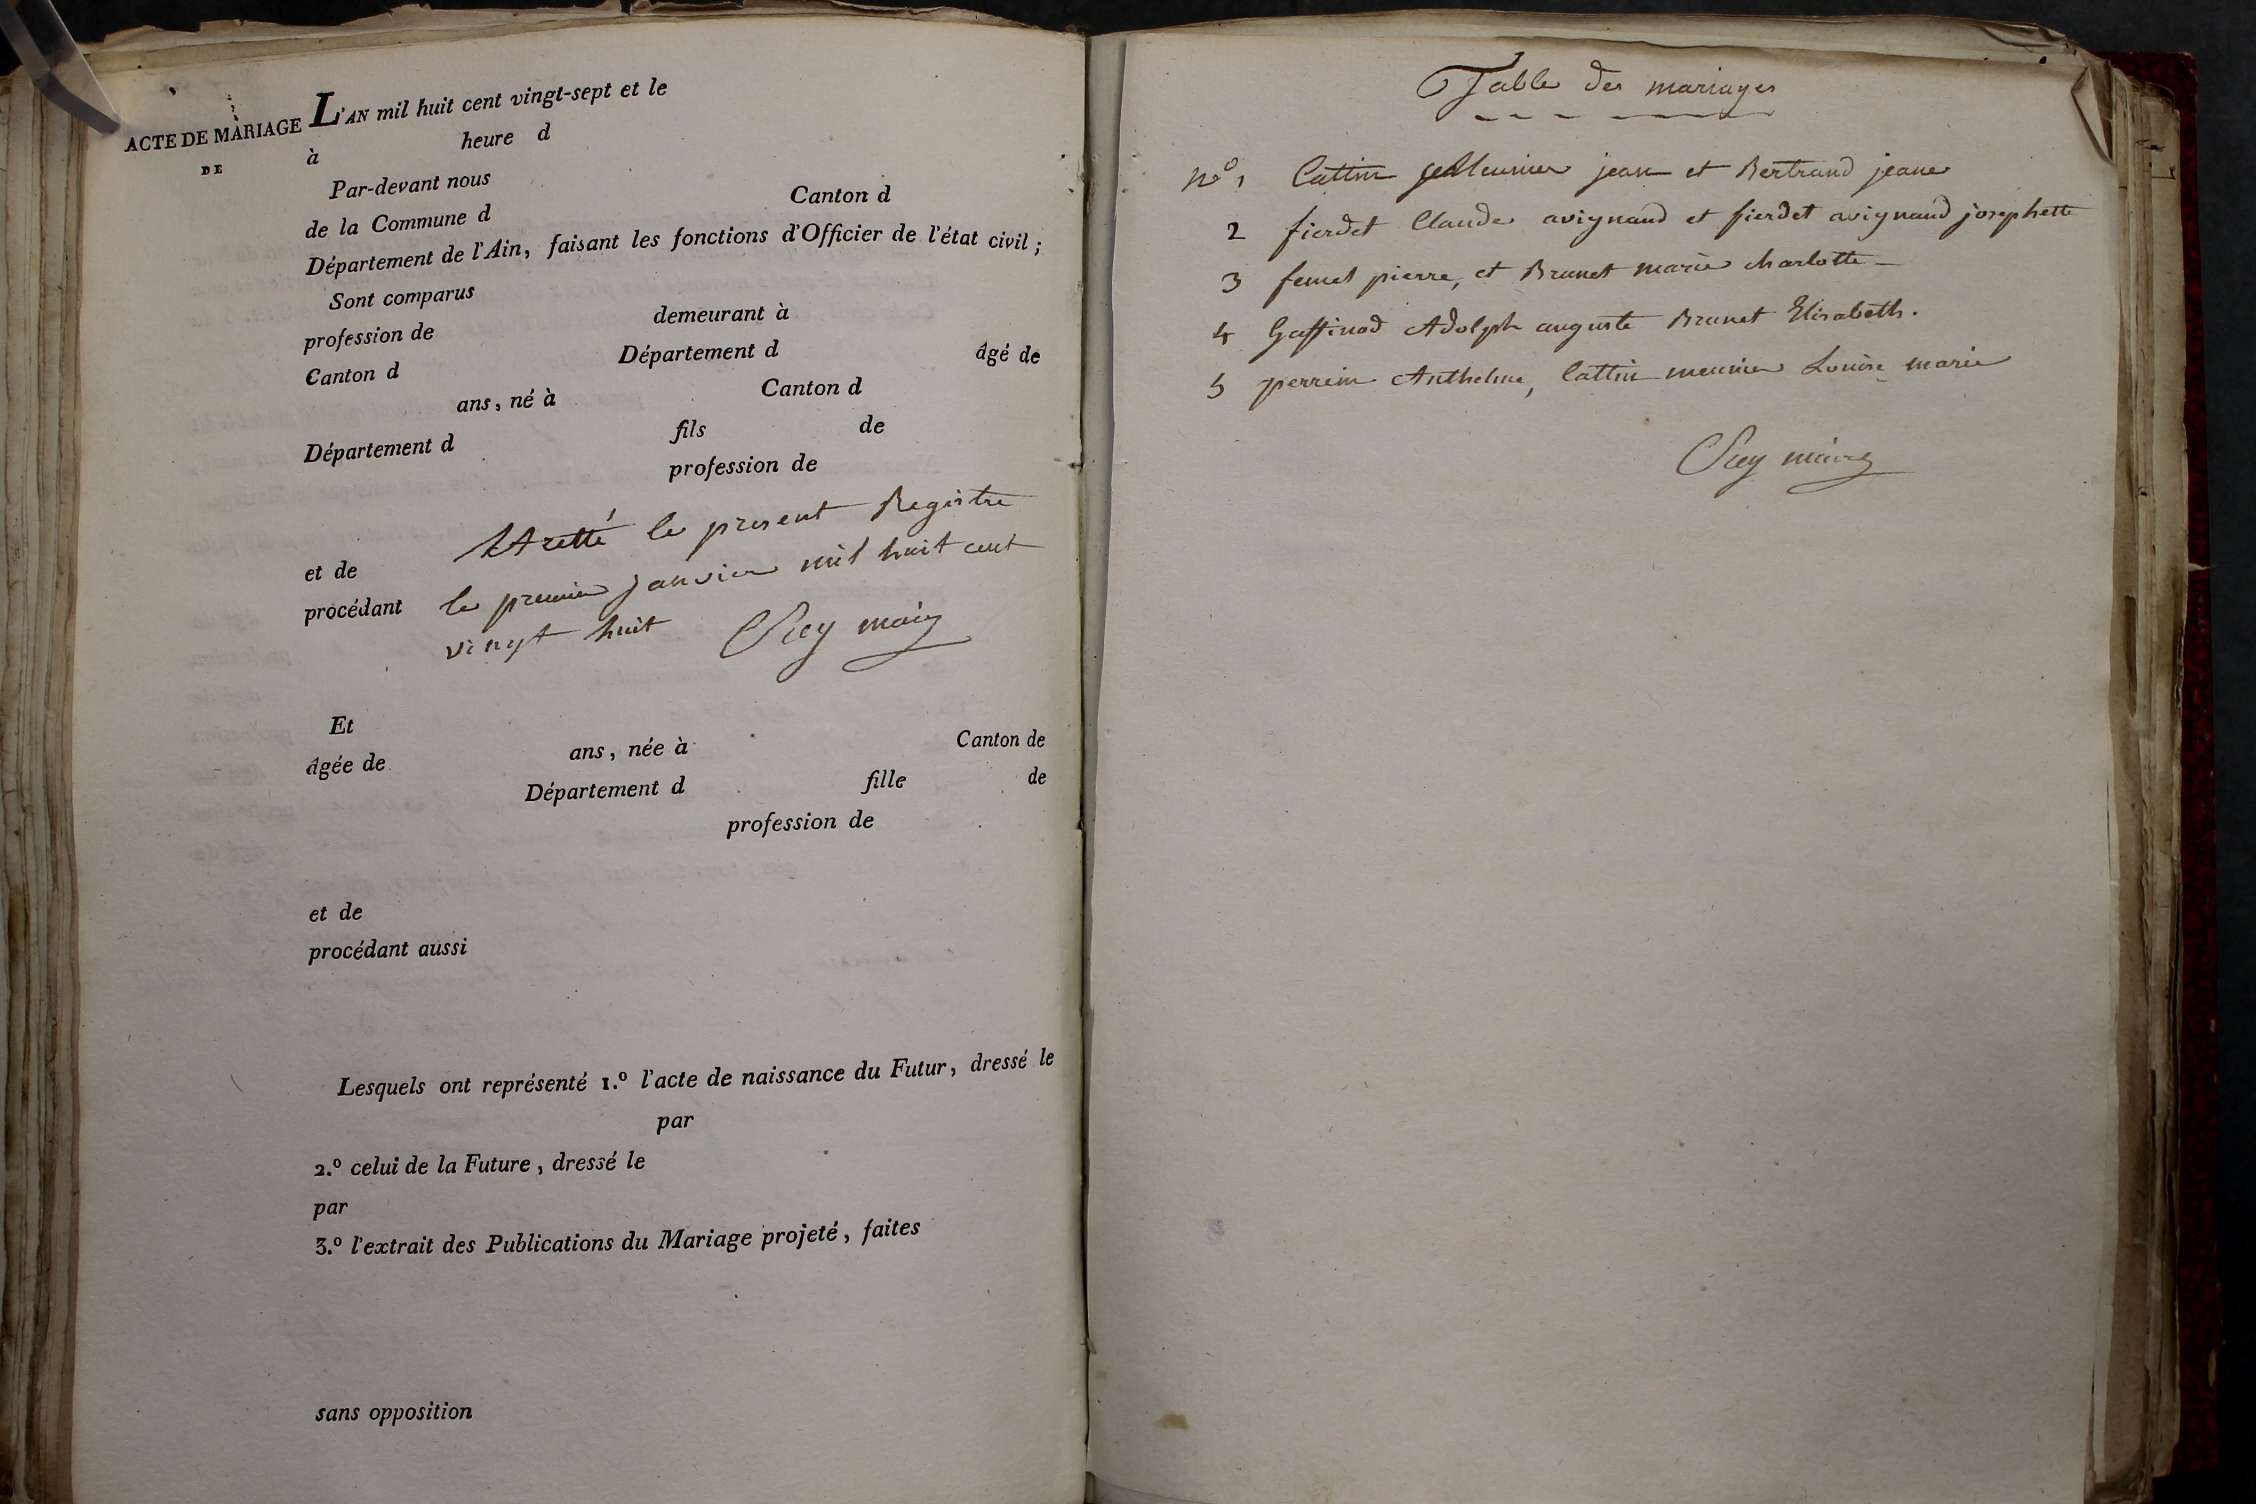 ACTE DE MARIAGE
DE
L'AN mil huit cent vingt-sept et le
à heure d
Par-devant nous
de la Commune d Canton d
Département de l'Ain, faisant les fonctions d'Officier de l'état civil ;
Sont comparus
profession de demeurant à
Canton d Département d âgé de
ans, né à Canton d
Département d fils de
profession de
Arretté le present Registre
et de
le premier janvier mil huit cent
procédant
vingt huit maire
Et
âgée de ans, née à Canton de
Département d fille de
profession de
et de
procédant aussi
Lesquels ont représenté 1.º l'acte de naissance du Futur, dressé le
par
2.º celui de la Future, dressé le
par
3.º l'extrait des Publications du Mariage projeté, faites
sans opposition
Table des mariages
Nº 1 Cattin jean et Bertrand jeane
2 fierdet Claude avignand et fierdet avignand josephette
3 pierre, et Brunet marie charlotte
4 Adolph auguste Brunet Elisabeth.
5 perrein Anthelme, Cattin meunier Louise marie
maire